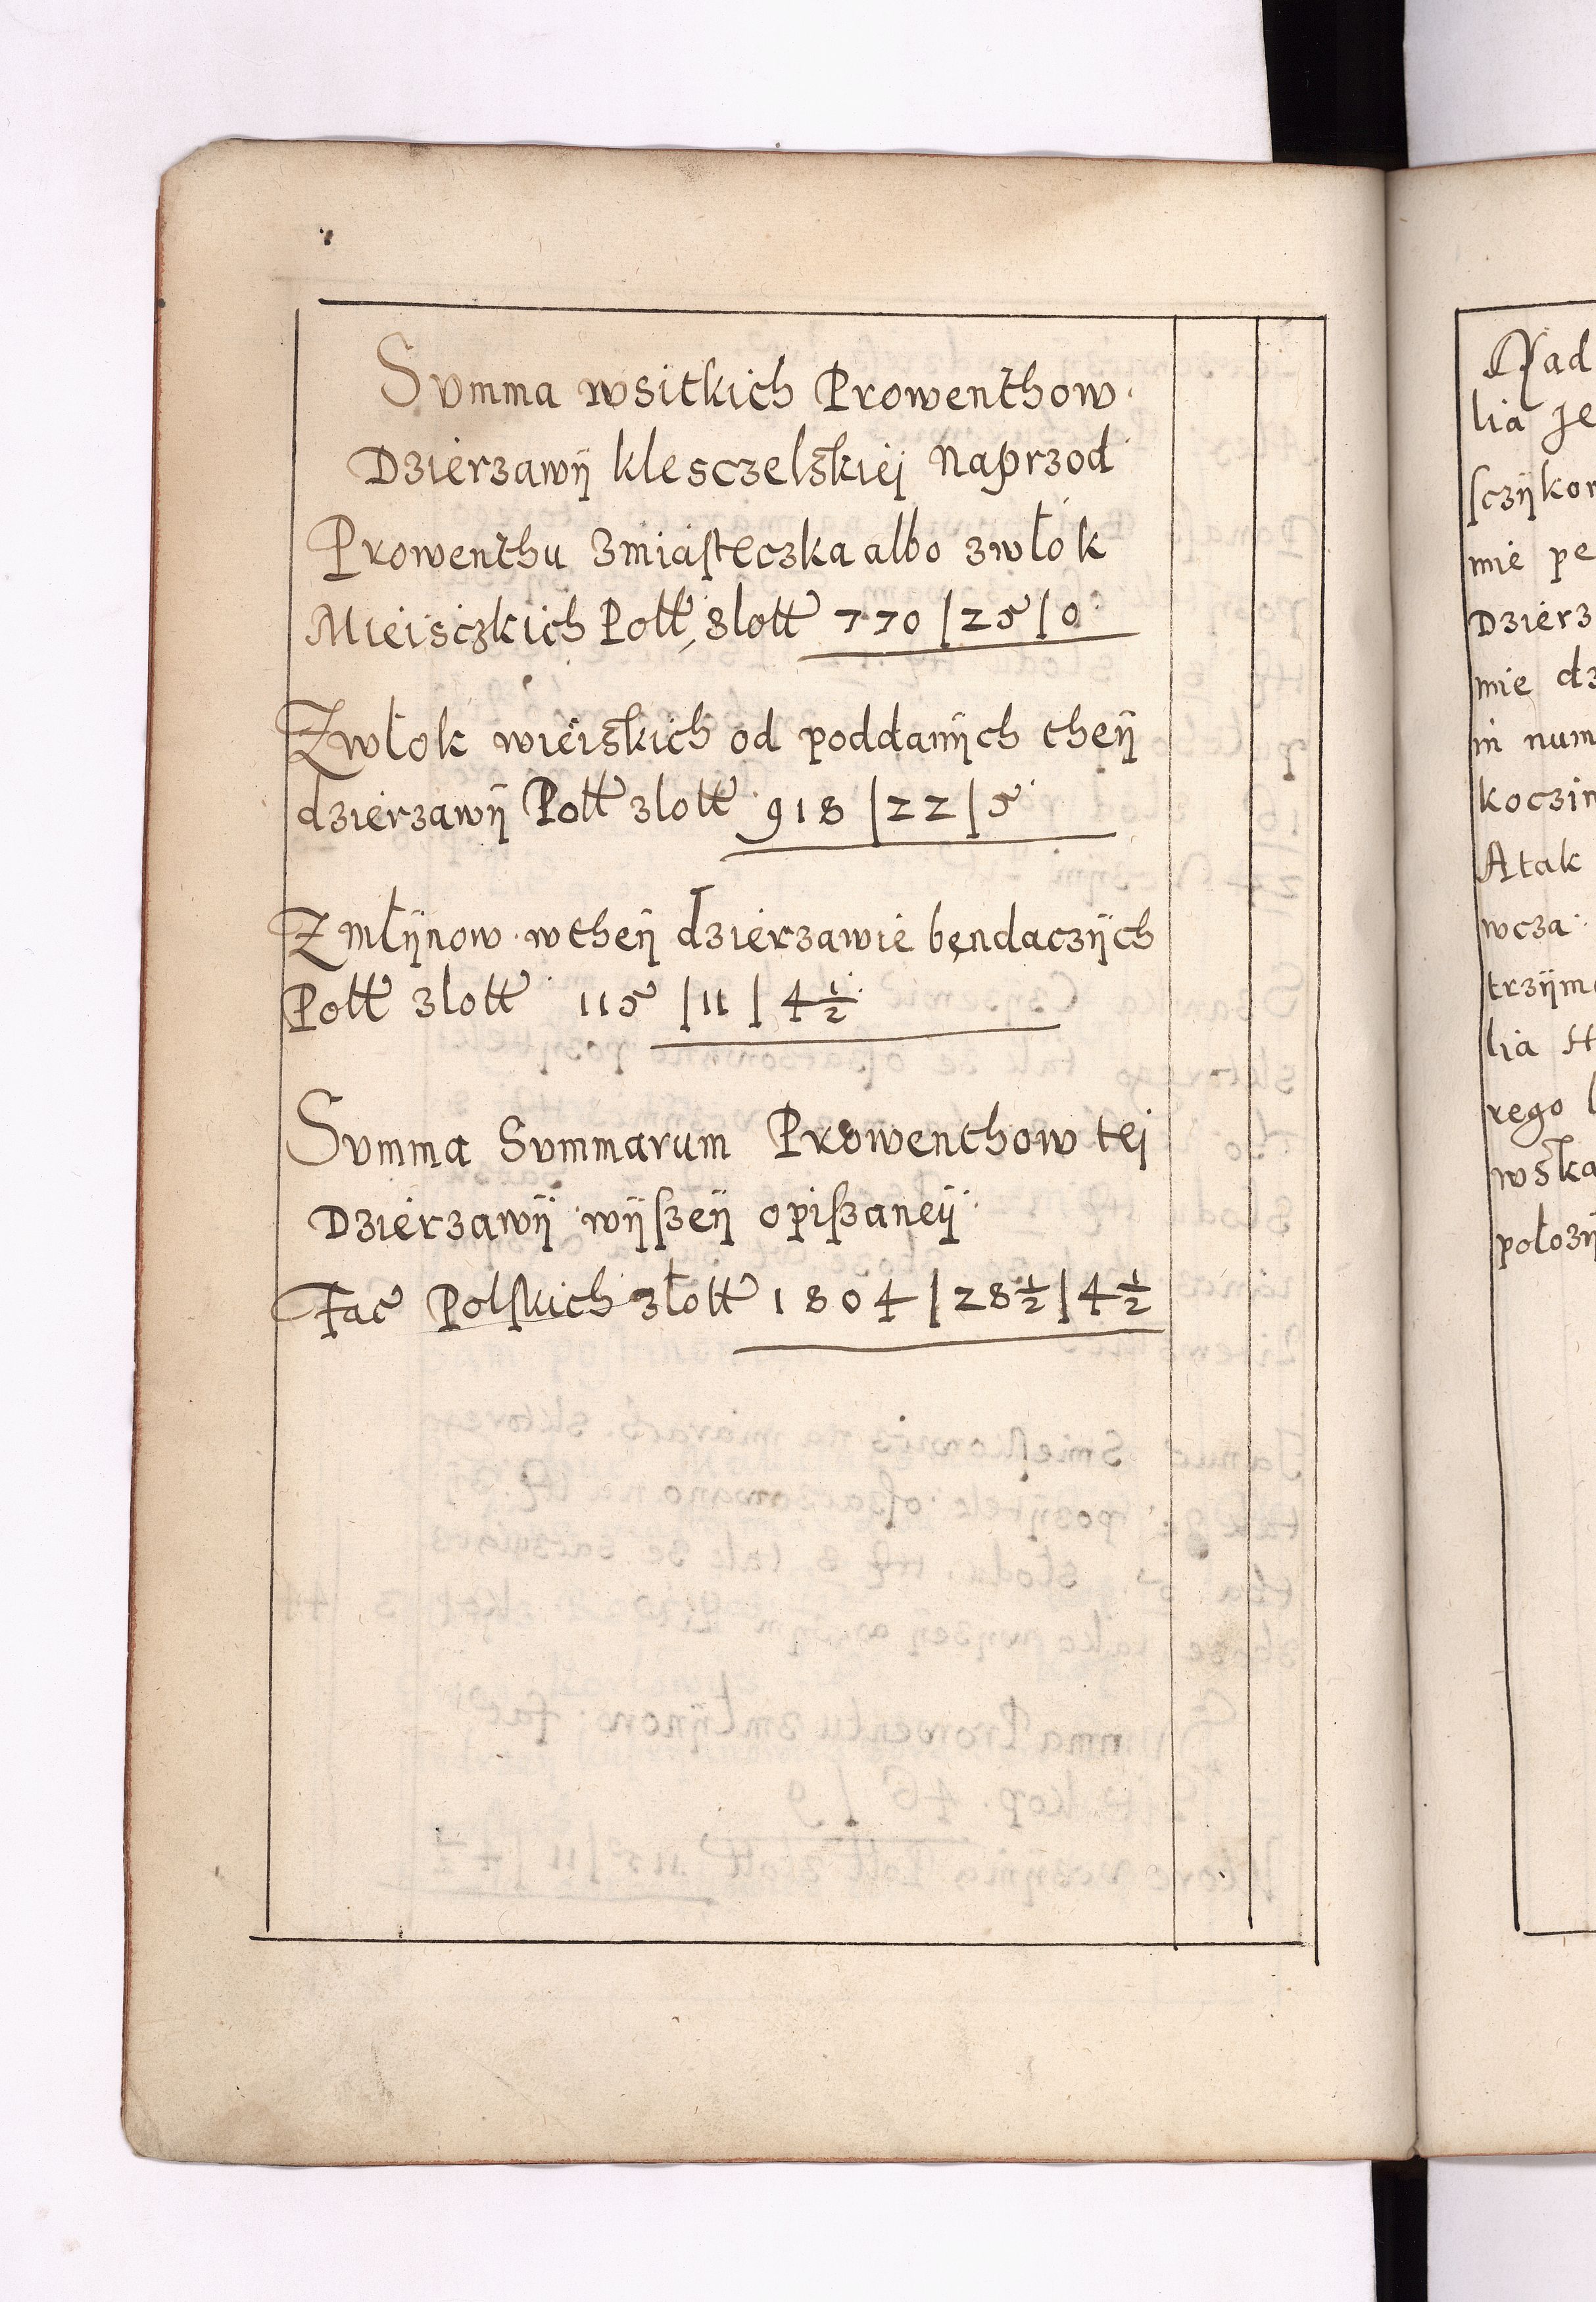 Svmma wsitkich Prowenthow
Dzierzawÿ klesczelskiej Naprzod
Prowenthu zmiasteczka albo zwłok
Mieisczkich Poll, zlott 770 | 25 | 0
Zwłok wieiskich od poddanÿch theÿ
dzierzawÿ Poll zlott 918 | 22 | 5
Z młÿnow wtheÿ dzierzawie bendaczÿch
Poll zlott 115 | 11 | 4 1/2
Svmma Svmmarum Prowenthow tej
Dzierzawÿ wÿszeÿ opiszaneÿ
Fac Polskich złott 1804 | 28 1/2 | 4 1/2
Nad
lia Je
sczÿkon
mie pe
Dzierz
mie dz
in num
koczin
Atak
wcza
trzÿm
lia
rego
wska
położÿ